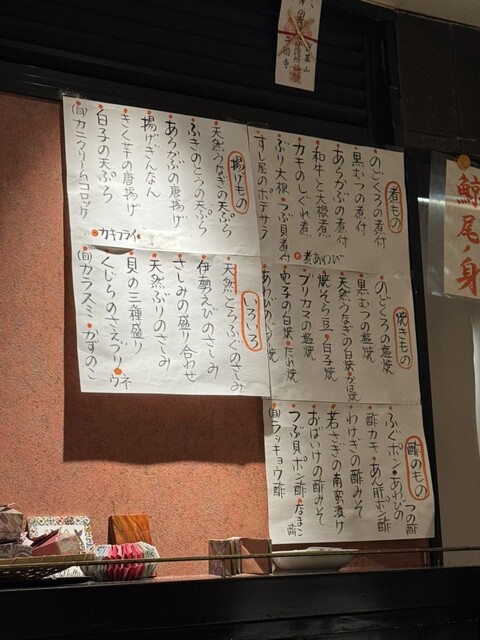 煮もの
のどくろの煮付
黒むつの煮付
あらかぶの煮付
和牛と大根煮
カキのしぐれ煮
ぶり大根・つぶ貝煮付
すし屋のポテサラ
煮あわび
揚げもの
天然うなぎの天ぷら
ふきのとうの天ぷら
あらかぶの唐揚げ
揚げぎんなん
きく芋の唐揚げ
白子の天ぷら
(自)カニクリームコロッケ
カキフライ
焼きもの
のどくろの塩焼
黒むつの塩焼
天然うなぎの白焼・かば焼
焼そら豆・白子焼
ブリカマの塩焼
穴子の白焼・たれ焼
いろいろ
天然とらふぐのさしみ
伊勢えびのさしみ
さしみの盛り合わせ
天然ぶりのさしみ
貝の三種盛り
くじらのさえずり・ウネ
(自)カラスミ・かずのこ
酢のもの
ふぐポン・あわびの
つの酢
酢カキ・あん肝ポン酢
わけぎの酢みそ
若さぎの南蛮漬け
おばいけの酢みそ
つぶ貝ポン酢・なまこ酢
(自)ラッキョウ酢
鯨尾ノ身